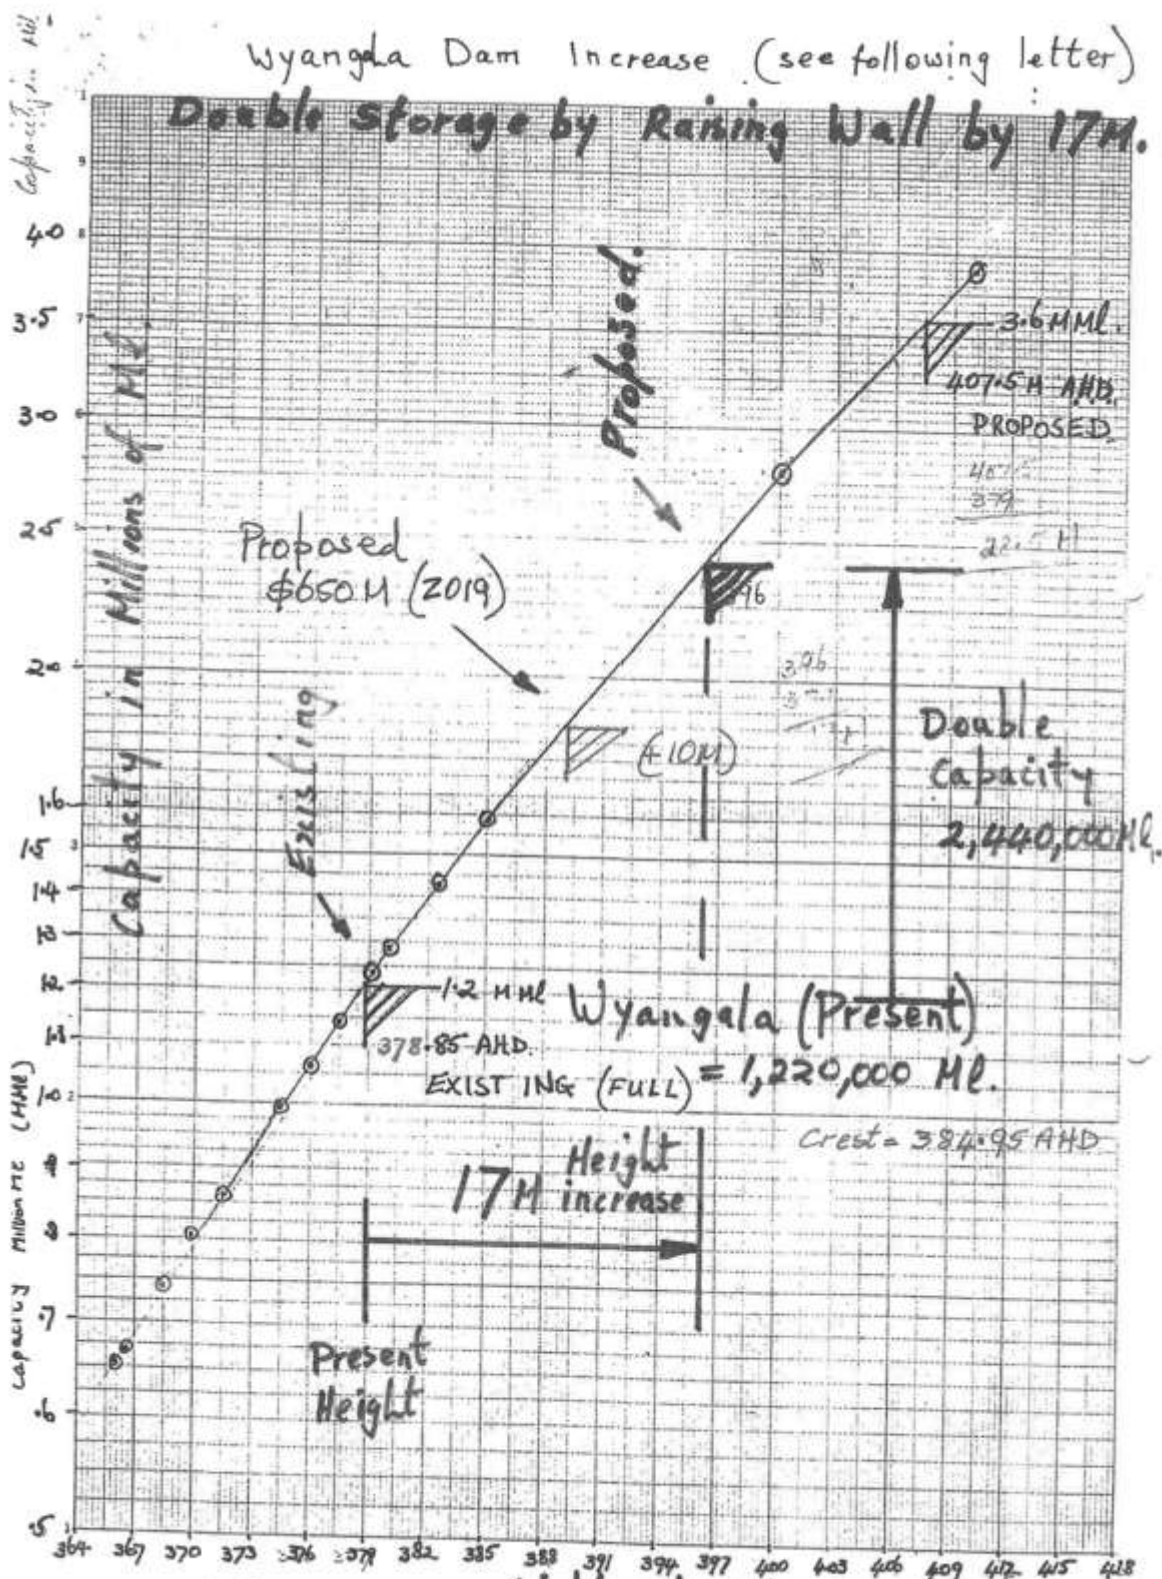 Wyangala Dam Increase (see following letter)
Double Storage by Raising Wall by 17M.
Capacity in Mil
Capacity in Millions of Ml.
Capacity Millions Ml (MMl)
1
9
4.0 8
3.5 7
3.0 6
2.5 5
2.0 4
1.6
1.5 3
1.4
1.3
1.2
1.1
1.0 2
.9
.8
.7
.6
.5 1
Proposed.
3.6 MMl.
407.5 M AHD.
PROPOSED
407.5
379
22.5 M
Proposed
$650M (2019)
396
396
(+10M)
Double
Capacity
2,440,000 Ml.
Existing
1.2 MMl
378.85 AHD.
EXISTING (FULL)
Wyangala (Present)
= 1,220,000 Ml.
Crest = 384.95 AHD
17M Height increase
Present
Height
364 367 370 373 376 379 382 385 388 391 394 397 400 403 406 409 412 415 418